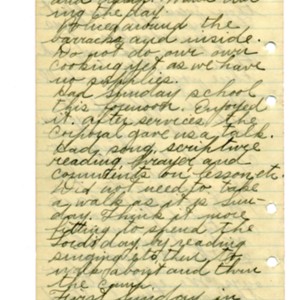 ing the day.
Policed around the
barracks and inside.
Do not do our own
cooking yet as we have
no supplies.
Had Sunday school
this forenoon. Enjoyed
it. After services the
corporal gave us a talk.
Had song, scripture
reading, prayer and
comments on lesson etc.
Did not need to take
a walk as it is Sun-
day. Think it more
fitting to spend the
Lord's day by reading
singing etc. then to
walk about and
the camp.
First Sunday in